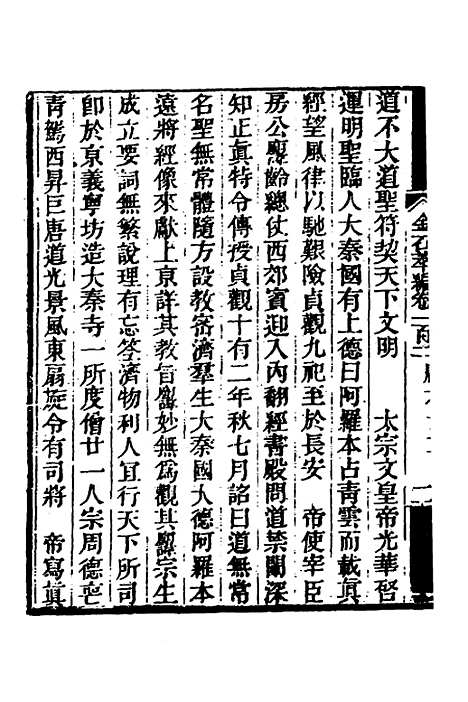 金石萃編卷一百二
道不大道聖符契天下文明　太宗文皇帝光華啓
運明聖臨人大秦國有上德曰阿羅本占青雲而載真
經望風律以馳艱險貞觀九祀至於長安　帝使宰臣
房公懸齡總仗西郊賓迎入內翻經書殿問道禁闈深
知正真特令傳授貞觀十有二年秋七月詔曰道無常
名聖無常體隨方設教密濟羣生大秦國大德阿羅本
遠將經像來獻上京詳其教旨懸妙無為觀其懸宗生
成立要詞無繁說理有忘筌濟物利人宜行天下所司
卽於京義寧坊造大秦寺一所度僧廿一人宗周德喪
青駕西昇巨唐道光景風東扇旋令有司將　帝寫真